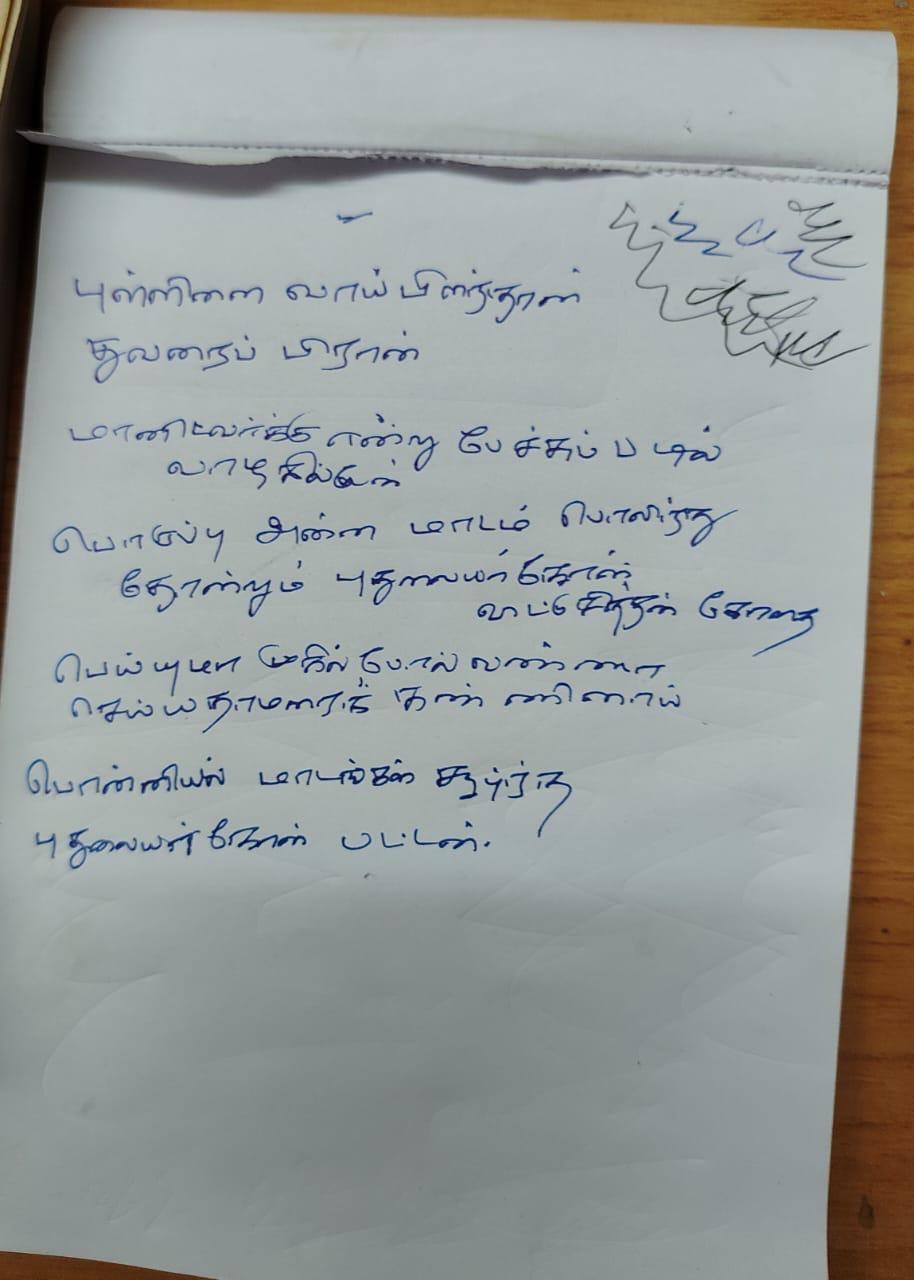 புள்ளினை வாய் பிளந்தான்
துவரைப் பிரான்
மானிடவர்க்கு என்று பேச்சுப் படில்
வாழகில்லேன்
பொருப்பு அன்ன மாடம் பொலிந்து
தோன்றும் புதுவையர்கோன்
விட்டுசித்தன் கோதை
பெய்யுமா முகில் போல் வண்ணா
செய்ய தாமரைக் கண்ணினாய்
பொன்னியல் மாடங்கள் சூழ்ந்த
புதுவையர்கோன் பட்டன்.